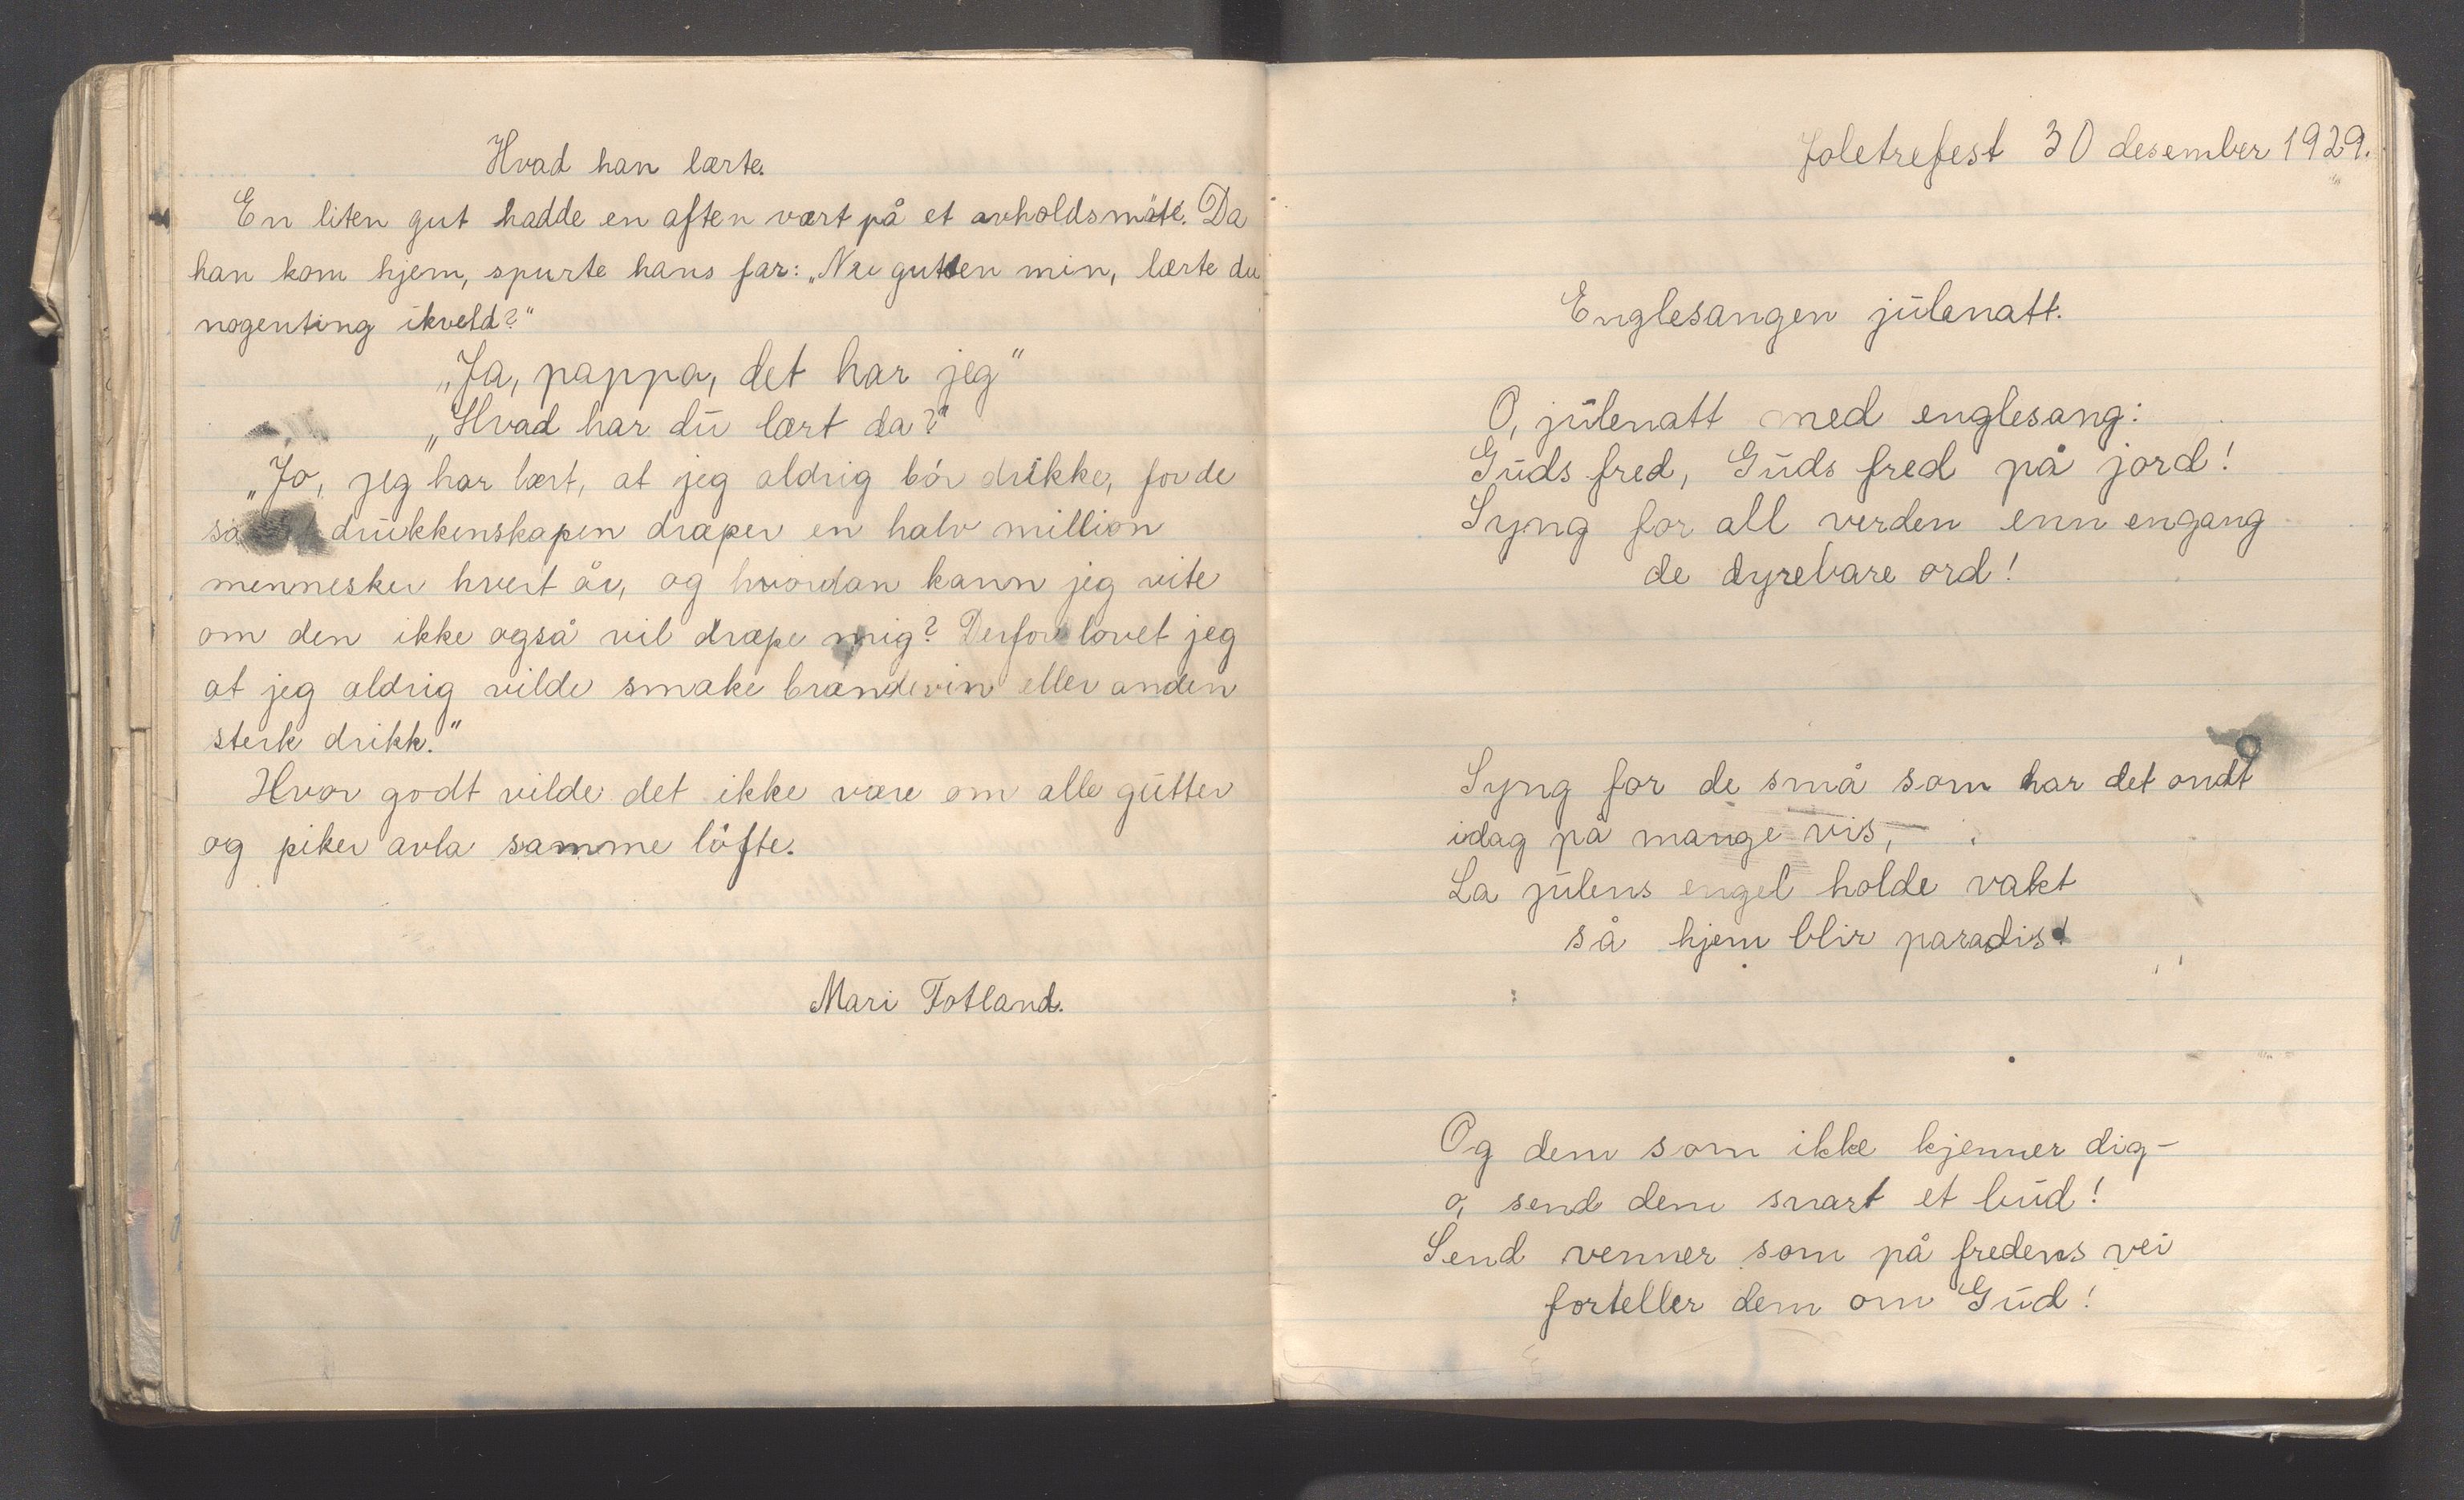 Hvad han lærte.
En liten gut hadde en aften vært på et avholdsmöte. Da
han kom hjem, spurte hans far: „Nu gutten min, lærte du
nogenting ikveld?"
„Ja, pappa, det har jeg"
„Hvad har du lært da?"
„Jo, jeg har lært, at jeg aldrig bör drikke, for de
sa drukkenskapen dræper en halv million
mennesker hvert år, og hvordan kann jeg vite
om den ikke også vil dræpe mig? Derfor lovet jeg
at jeg aldrig vilde smake brændevin eller anden
sterk drikk."
Hvor godt vilde det ikke være om alle gutter
og piker avla samme löfte.
Mari Fotland.
Joletrefest 30 desember 1929.
Englesangen julenatt.
O, julenatt med englesang:
Guds fred, Guds fred på jord!
Syng for all verden enn engang
de dyrebare ord!
Syng for de små som har det ondt
idag på mange vis,
La julens engel holde vakt
så hjem blir paradis!
Og dem som ikke kjenner dig-
o, send dem snart et bud!
Send venner som på fredens vei
forteller dem om Gud!